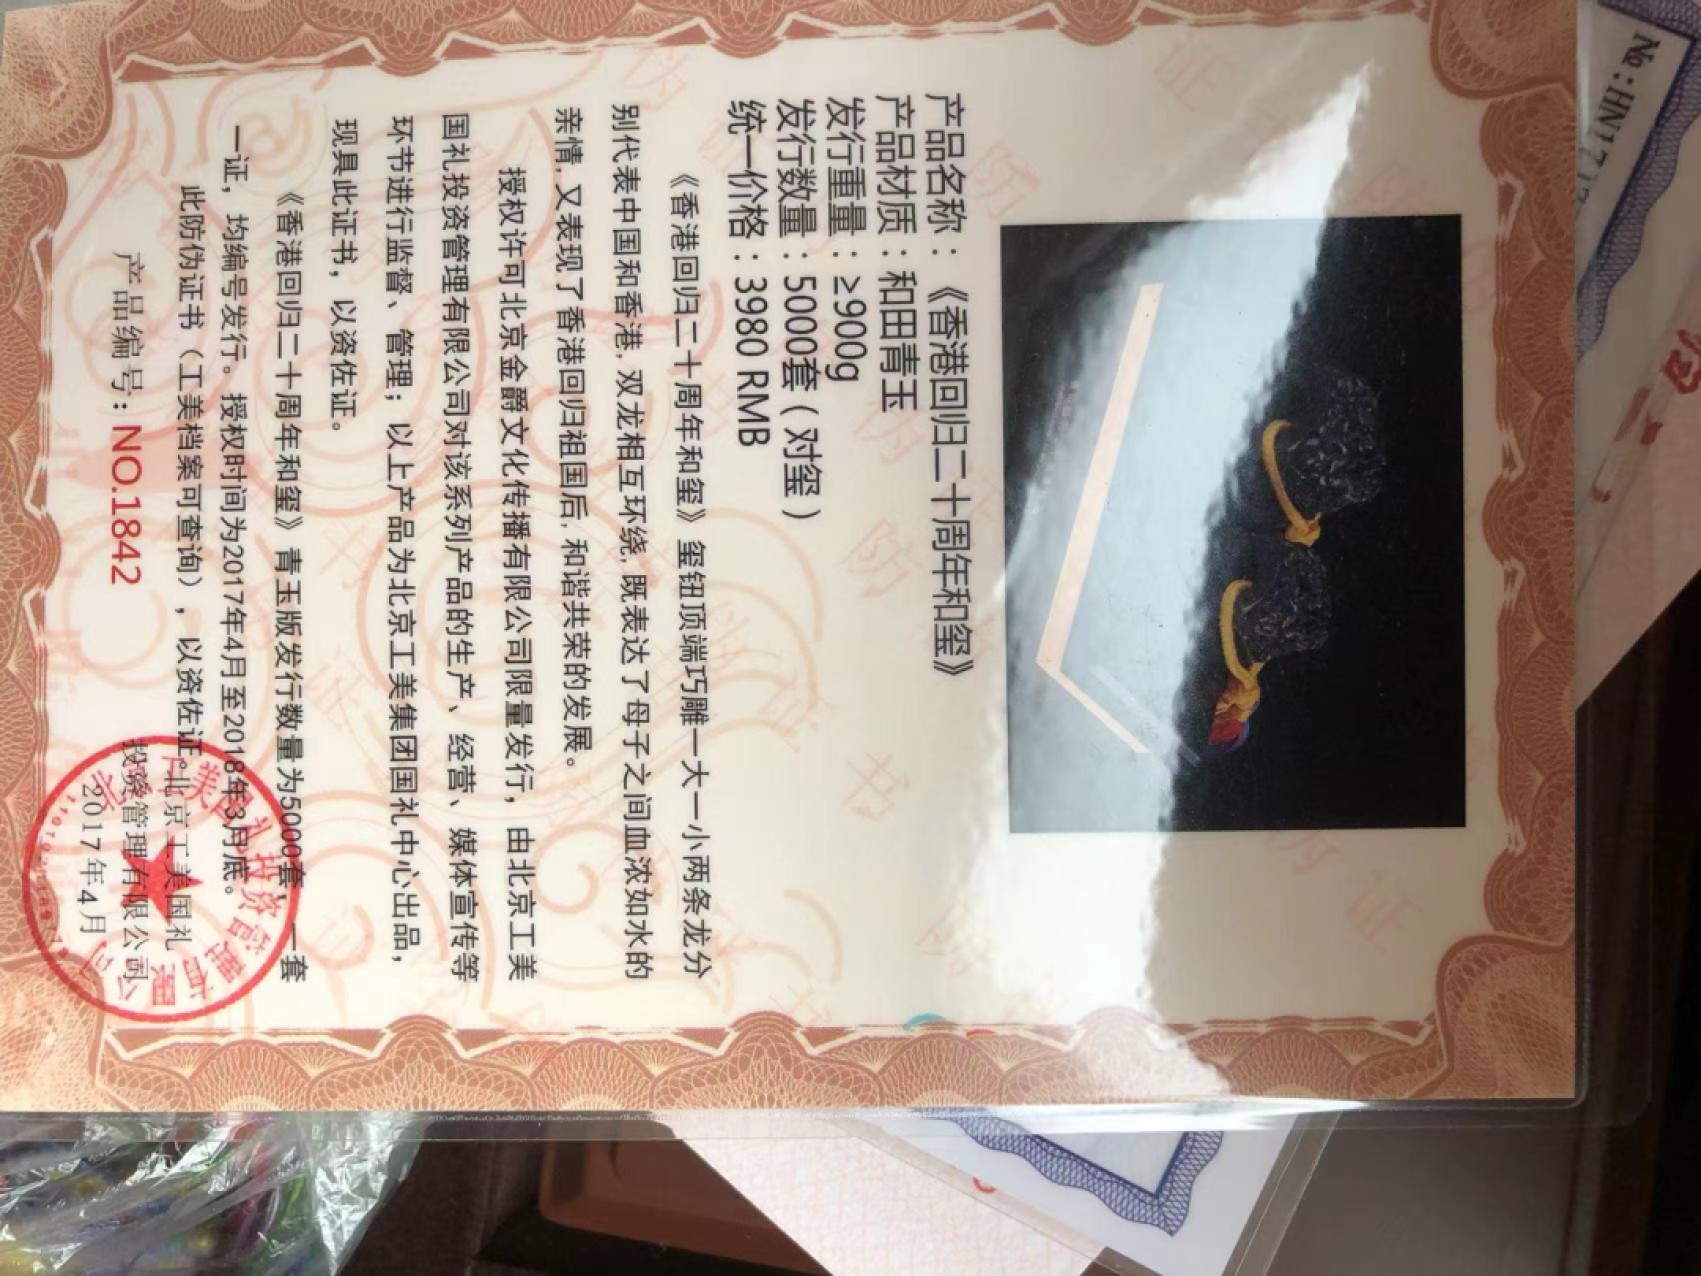 产品名称：《香港回归二十周年和玺》
产品材质：和田青玉
发行重量：≥900g
发行数量：5000套（对玺）
统一价格：3980 RMB
《香港回归二十周年和玺》玺钮顶端巧雕一大一小两条龙分
别代表中国和香港，双龙相互环绕，既表达了母子之间血浓如水的
亲情，又表现了香港回归祖国后，和谐共荣的发展。
授权许可北京金爵文化传播有限公司限量发行，由北京工美
国礼投资管理有限公司对该系列产品的生产、经营、媒体宣传等
环节进行监督、管理；以上产品为北京工美集团国礼中心出品，
现具此证书，以资佐证。
《香港回归二十周年和玺》青玉版发行数量为5000套，一套
一证，均编号发行。授权时间为2017年4月至2018年3月底。
此防伪证书（工美档案可查询），以资佐证。
产品编号：NO.1842
北京工美国礼
投资管理有限公司
2017年4月
№:HN1712